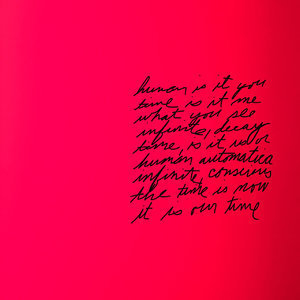 human, is it you
time, is it me
what you see
infinite, decay
time, is it us or
human automatica
infinite, conscious
the time is now
it is our time